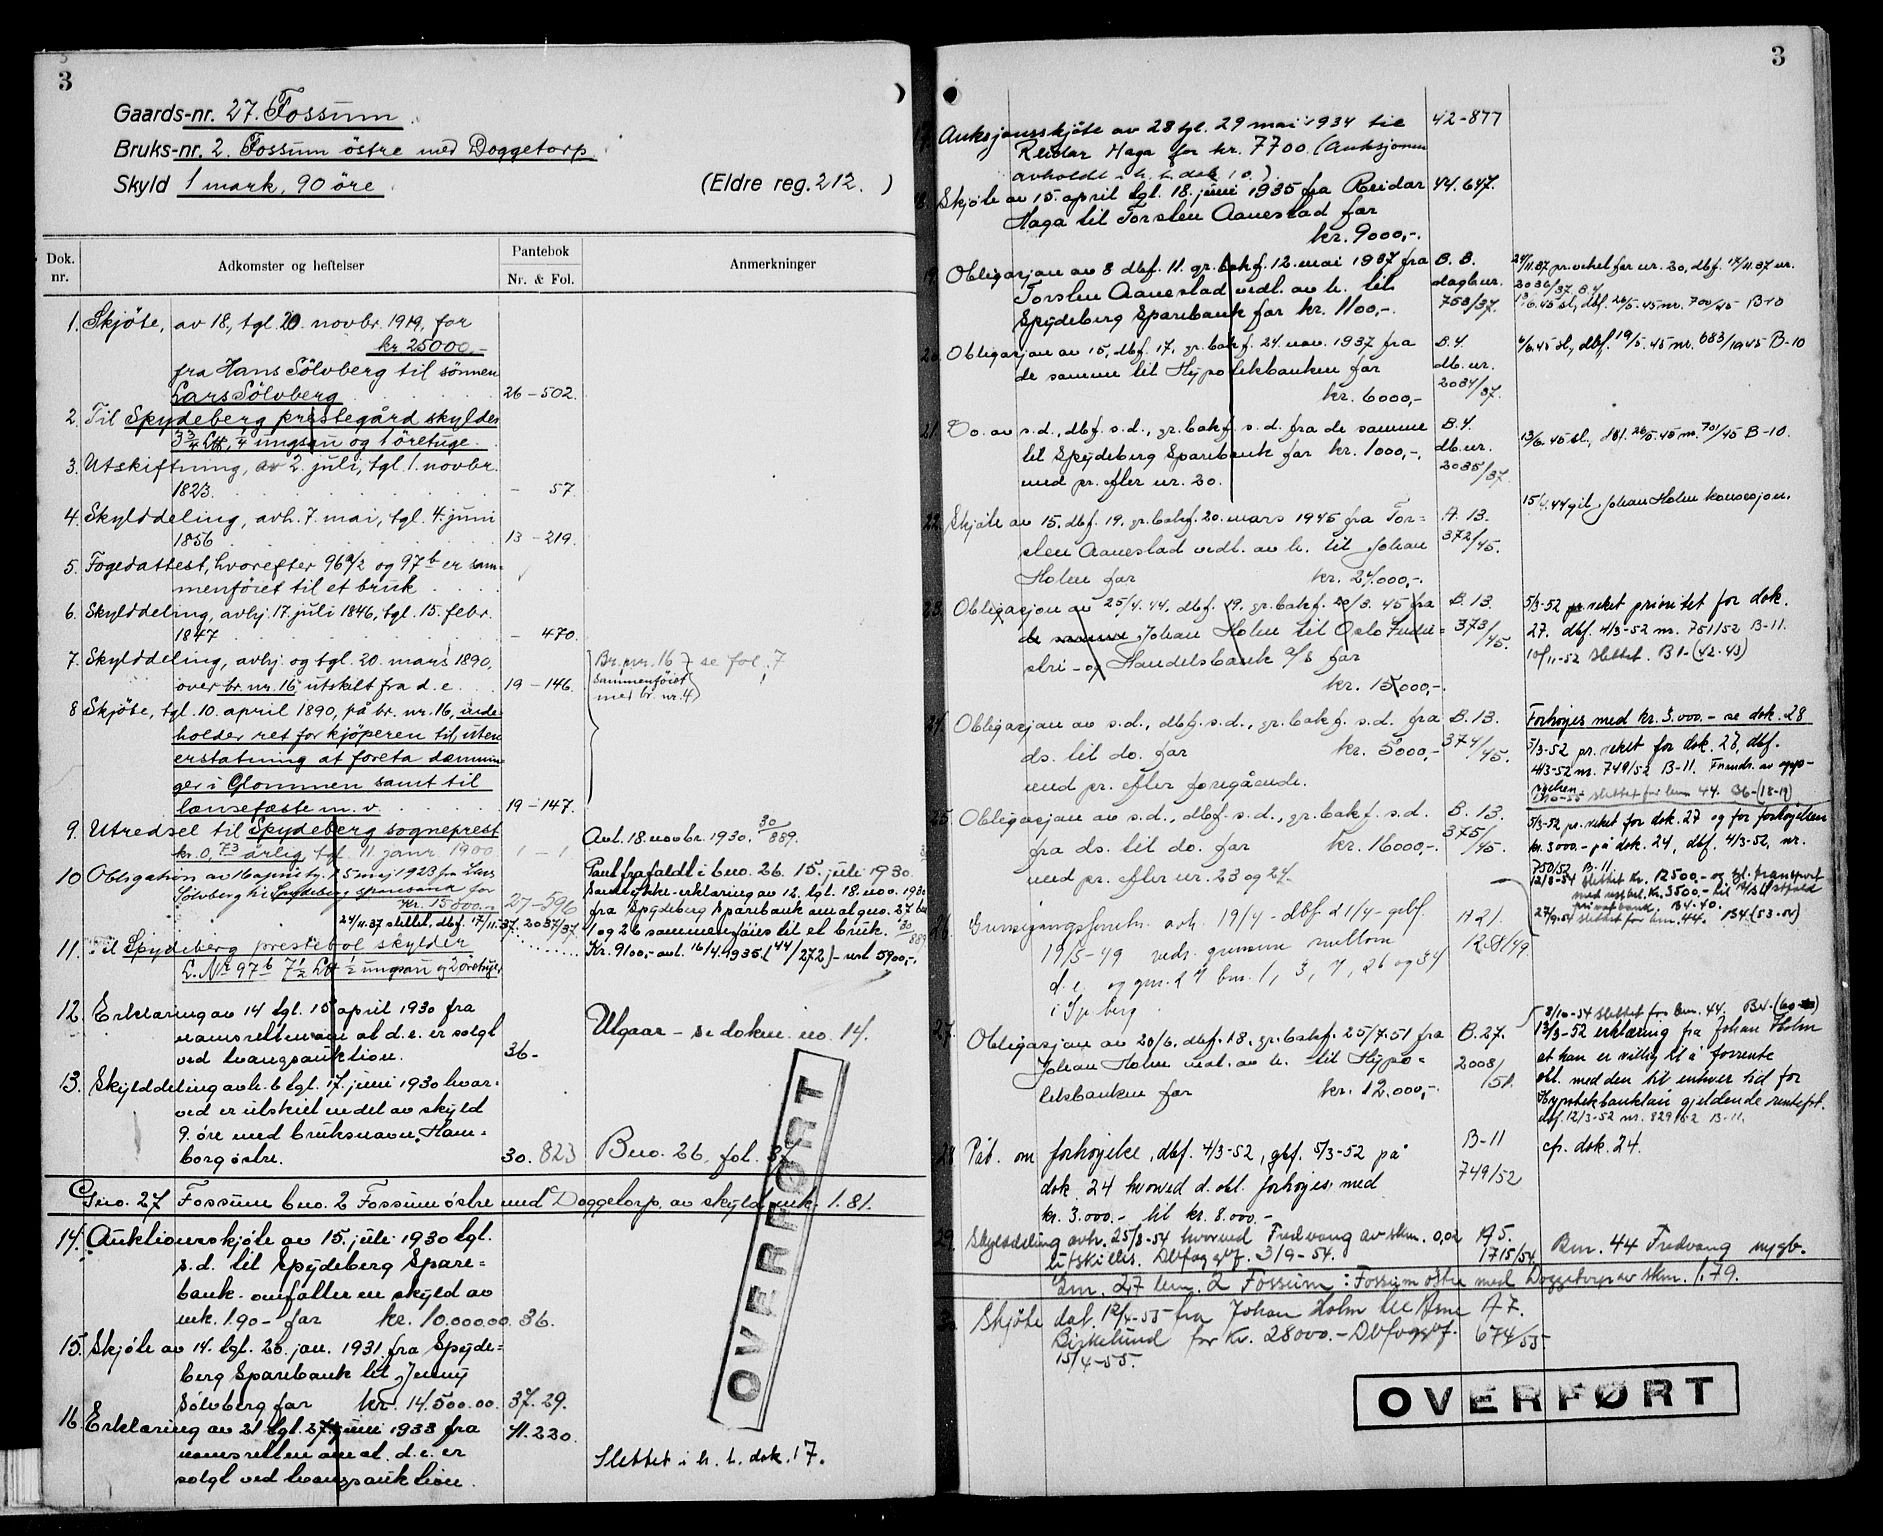 3
Gaards-nr. 27. Fossum
Bruks-nr. 2. Fossum östre med Doggetorp
Skyld 1 mark, 90 öre (Eldre reg. 212. )
Dok. nr. Adkomster og heftelser Pantebok Nr. & Fol. Anmerkninger
1. Skjöte, av 18, tgl. 20. novbr. 1919, for
kr 25000.-
fra Hans Sölvberg til sönnen
Lars Sölvberg 26 - 502.
2. Til Spydeberg prestegård skyldes
3 3/4 L℔, 1/4 ungsau og 1 öretuge.
3. Utskiftning, av 2. juli, tgl. 1. novbr.
1823. - 57.
4. Skylddeling, avh. 7. mai, tgl. 4. juni
1856 13 - 219.
5. Fogedattest, hvorefter 96 a/2 og 97 b er sam-
menföiet til et bruk
6. Skylddeling, avhj. 17. juli 1846, tgl. 15. febr.
1847 - 470.
7. Skylddeling, avhj og tgl. 20. mars 1890,
over br. nr. 16 utskilt fra d. e. 19 - 146.
Br. nr. 16 se fol. 7
sammenföiet
med br. nr. 4
8 Skjöte, tgl. 10. april 1890, på br. nr. 16, inde-
holder ret for kjöperen til uten
erstatning at foreta dæmnin-
ger i Glommen samt til
lænsefæste m. v. 19 - 147.
9. Utredsel til Spydeberg sogneprest
kr. 0,73 årlig, tgl. 11. janr. 1900 1 - 1
Avl. 18 novbr. 1930. 30/889.
10 Obligation av 16 april tgl. 5 mai 1923 fra Lars
Sölvberg til Spydeberg sparebank for
kr. 15000.- 27-596
24/11.37 slettet, dbf. 17/11.37. 2037/37.
Pant frafaldt i bno. 26. 15. juli 1930.
Samtykke-erklæring av 12. tgl. 18. nov. 1930
fra Spydeberg Sparebank om at gno. 27 bno
1 og 26 sammenföies til et bruk. 30/889
Kr. 9100,- avl. 16/4.1935. (44/272) - rest 5900,-.
11. Til Spydeberg prestebol skylder
L. Nr 97 b 7 1/2 L℔ 1/2 ungsau og 2 öretuger
12. Erklæring av 14 tgl. 15 april 1930 fra
namsretten om at d. e. er solgt
ved tvangsauktion. 36-
Utgaar - se dokm. no. 14.
13. Skylddeling avh. 6 tgl. 17. juni 1930 hvor-
ved er utskilt en del av skyld
9. öre med bruksnavn, Ham-
borg östre. 30. 823 Bno. 26. fol. 37
Gno. 27 Fossum bno. 2 Fossum östre med Doggetorp. av skyld mk. 1.81.
14. Auktionsskjöte av 15. juli 1930 tgl.
s. d. til Spydeberg Spare-
bank. omfatter en skyld av
mk. 1.90 - for kr. 10.000.00. 36.
15. Skjöte av 14. tgl. 26. jan. 1931. fra Spyde-
berg Sparebank til Jenny
Sölvberg for kr. 14.500.00. 37. 29.
16. Erklæring av 21 tgl. 27. juni 1933 fra 41. 220.
namsretten om at d. e. er
solgt ved tvangsauktion.
Slettet i h. t. dok. 17.
OVERFØRT
3
17. Auksjonsskjöte av 28 tgl. 29 mai 1934 til 42-877
Reidar Haga for kr. 7700. (Auksjonen
avholdt i h. t. dok 10.)
18. Skjöte av 15. april tgl. 18. juni 1935 fra Reidar 44. 647.
Haga til Torsten Aanestad for
kr. 9000,-.
19. Obligasjon av 8 dbf. 11. gr. bokf. 12. mai 1937 fra B. 3.
Torsten Aanestad vedl. av h. til dagb.nr.
Spydeberg Sparebank for kr. 1100,-. 753/37.
24/11.37 pr. veket for nr. 20, dbf. 17/11.37 nr.
2036/37. B.4.
13/6.45 sl., dbf. 26/5.45 nr. 700/45 B-10
20. Obligasjon av 15, dbf. 17, gr. bokf. 24. nov. 1937 fra B. 4.
de samme til Hypotekbanken for db. nr.
kr. 6000,- 2034/37.
6/6.45 sl., dbf. 19/5.45 nr. 683/1945 B-10
21. Do. av s. d., dbf. s. d., gr. bokf. s. d. fra de samme B. 4.
til Spydeberg Sparebank for kr. 1000,-. db. nr.
med pr. efter nr. 20. 2035/37.
13/6.45 sl., dbf. 26/5.45 nr. 701/45 B-10.
22. Skjöte av 15. dbf. 19. gr. bokf. 20. mars 1945 fra Tor- A. 13.
sten Aanestad vedl. av h. til Johan 372/45.
Holm for kr. 24.000,-.
15/4.44 git Johan Holm konsesjon.
23. Obligasjon av 25/4.44, dbf. 19. gr. bokf. 20/3. 45 fra B. 13.
de samme Johan Holm til Oslo Indu- 373/45.
stri- og Handelsbank a/s for
kr. 15.000,-.
5/3-52 pr. veket prioritet for dok.
27. dbf. 4/3-52 nr. 751/52 B-11.
10/11-52 slettet. B1-(42-43)
24. Obligasjon av s. d., dbf. s. d., gr. bokf. s. d. fra B. 13.
ds. til do. for kr. 5000,- 374/45.
med pr. efter foregående.
Forhöjes med kr. 3.000.- se dok. 28
5/3-52 pr. veket for dok. 27, dbf.
4/3-52 nr. 749/52 B-11.
25. Obligasjon av s. d., dbf. s. d., gr. bokf. s. d. B. 13.
fra ds. til do. for kr. 16000,-. 375/45.
med pr. efter nr. 23 og 24.
5/3-52 pr. veket for dok. 27 og for forhöjelsen
kr. 3000.- på dok. 24, dbf. 4/3-52, nr.
750/52 B-11.
12/8-54 slettet kr. 12500.- og tgl. transport
27/9-54 slettet for bnr. 44. B4.(53-54)
26. Grensegangsforretn. avh. 19/4 - dbf. 21/4 - gebf. A 21.
19/5-49 vedr. grensene mellom 1281/49.
d. e. og gnr. 27 bnr. 1, 3, 4, 26 og 34
i Sp.berg.
8/10-54 slettet for bnr. 44.
27. Obligasjon av 20/6, dbf. 18. gr. bokf. 25/7.51 fra B. 27.
Johan Holm vedl. av h. til Hypo- 2008/51.
tekbanken for kr. 12.000,-.
13/3-52 erklæring fra Johan Holm
at han er villig til å forrente
obl. med den til enhver tid for
Hypotekbanklån gjeldende rentefot.
dbf. 12/3-52 nr. 829/52 B-11.
28 Påt. om forhöyelse, dbf. 4/3-52, gbf. 5/3-52 på B-11
dok. 24 hvorved d. obl. forhöjes med 749/52
kr. 3.000.- til kr. 8.000.-
cfr. dok. 24.
29. Skylddeling avh. 25/8-54 hvorved Fredvang av skm. 0,02 A 5.
utskilles. Dbf og gbf. 3/9-54. 1715/54.
Bnr. 44 Fredvang nygb.
Gnr. 27 bnr. 2 Fossum: Fossum östre med Doggetorp av skm. 1.79.
30. Skjöte dat. 12/4-55 fra Johan Holm til Arne A 7.
Birkelund for kr. 28000.- Dbf og gbf. 674/55
15/4-55.
OVERFØRT